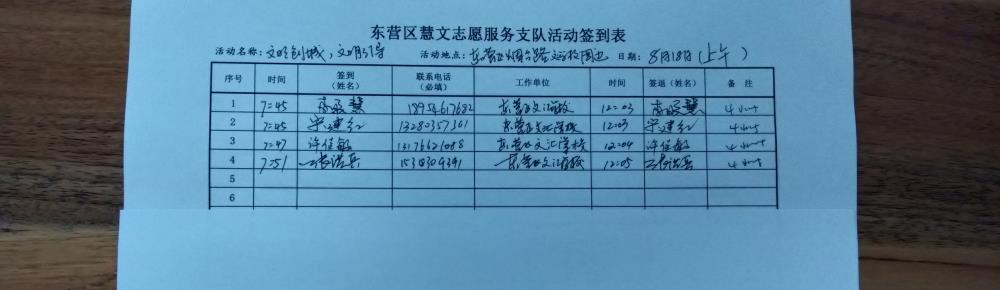 东营区慧文志愿服务支队活动签到表
活动名称：文明创城，文明引导 活动地点：东营区烟台路文汇学校周边 日期：8月18日(上午)
序号 时间 签到（姓名） 联系电话（必填） 工作单位 时间 签退（姓名） 备 注
1 7:45 慧 东营区文汇学校 12:03 慧 4小时
2 7:45 宋建红 13280357361 东营区文汇学校 12:03 宋建红 4小时
3 7:47 许佳敏 13176621088 东营区文汇学校 12:04 许佳敏 4小时
4 7:51 张洪兵 东营区文汇学校 12:05 张洪兵 4小时
5
6